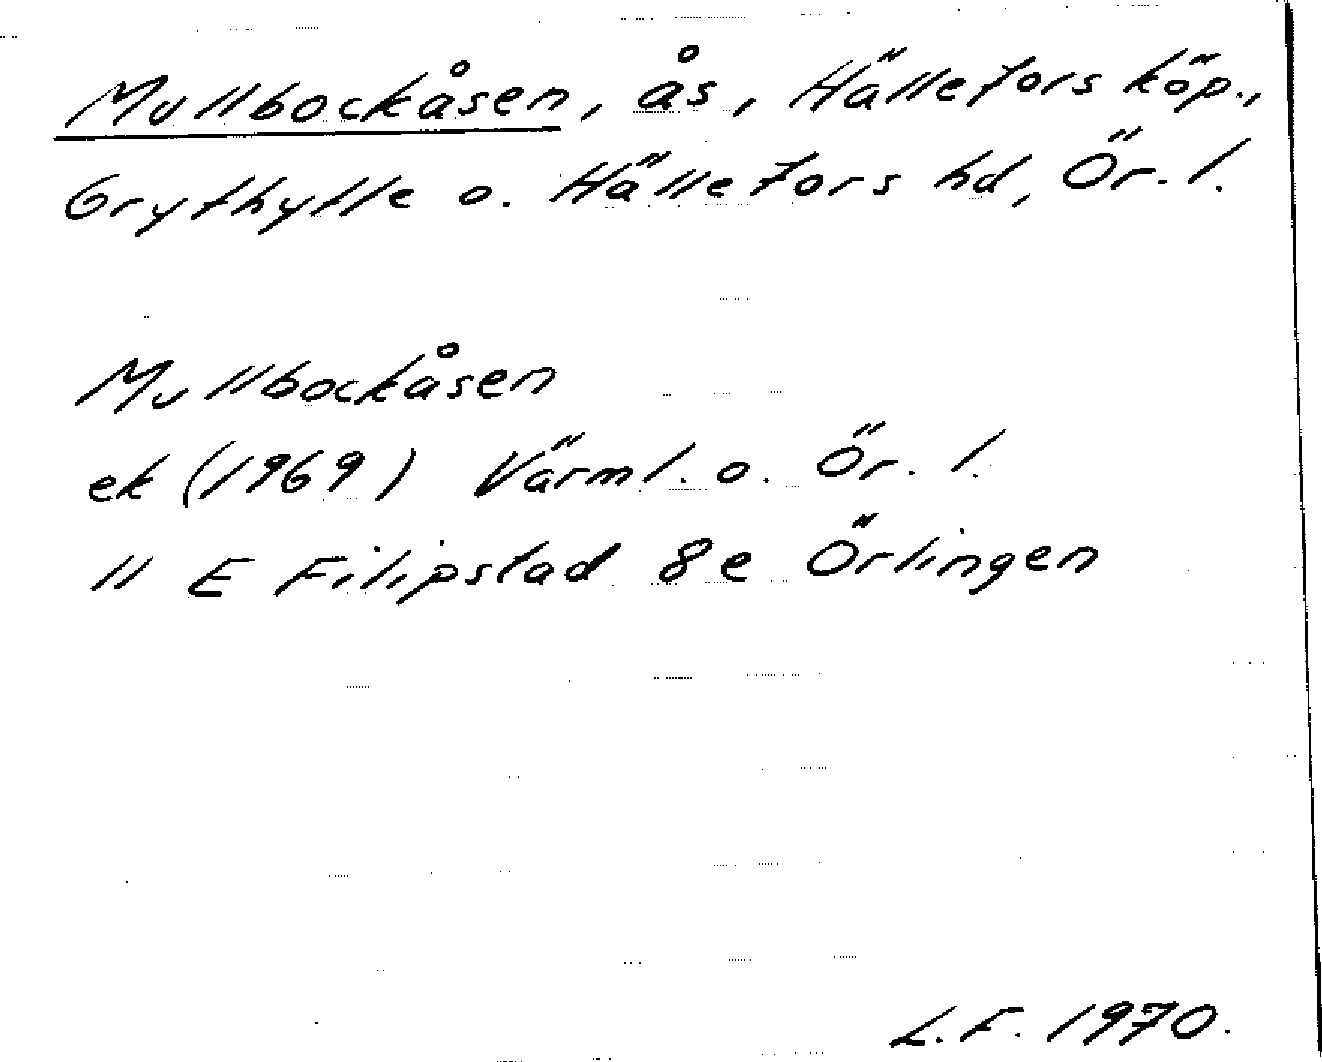 Mullbockåsen, ås, Hällefors köp.,
Grythytte o. Hällefors hd, Ör. l.
Mullbockåsen
ek (1969) Värml. o. Ör. l.
11 E Filipstad 8e Örlingen
L.F. 1970.